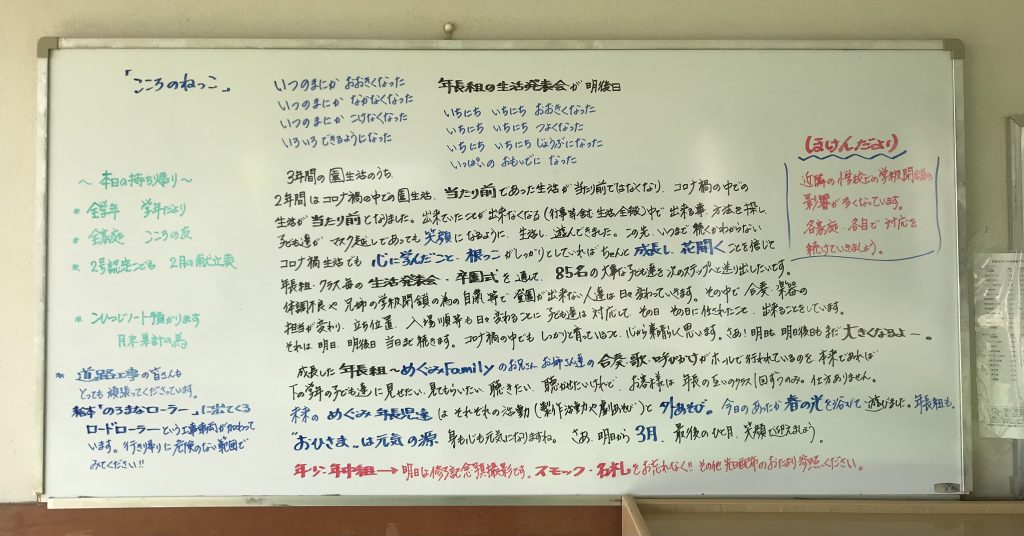 「こころのねっこ」
いつのまにか おおきくなった
いつのまにか なかなくなった
いつのまにか こけなくなった
いろいろ できるようになった
年長組の生活発表会が明後日
いちにち いちにち おおきくなった
いちにち いちにち つよくなった
いちにち いちにち じょうぶになった
いっぱいの おもいでに なった
3年間の園生活のうち
2年間はコロナ禍の中での園生活、当たり前であった生活が当たり前ではなくなり、コロナ禍の中での
生活が当たり前でなりました。出来ていたことが出来なくなる(行事含む生活全般)中で出来る事、方法を探し
子ども達が マスク越しであっても笑顔になるように、生活し、遊んできました。この先、いつまで続くかわからない
コロナ禍生活でも心に学んだこと・根っこがしっかりとしていればちゃんと成長し、花開くことを信じて
年長組・クラス毎の生活発表会・卒園式を通して、85名の大事な子ども達を次のステップへと送り出したいです。
体調不良や兄姉の学校閉鎖の為の自粛等で登園が出来ない人達は日々変わっていきます。その中で合奏・楽器の
担当が変わり、立ち位置、入場順等も日々変わることに子ども達は対応して、その日その日に任されたこと、出来ることをしています。
それは明日、明後日当日まで続きます。コロナ禍の中でもしっかり育っていること、心から素晴らしく思います。さあ!明日も明後日もまた大きくなるよー。
成長した年長組〜めぐみFamilyのお兄さんお姉さん達の合奏・歌・呼びかけがホールで行われているのを、本来であれば
下の学年の子ども達に見せたい、見てもらいたい、聴きたい、聴かせたいけれど、お客様は年長の互いのクラス1回ずつのみ。仕方ありません。
未来のめぐみ年長児達はそれぞれの活動(製作活動や劇あそび)と外あそび。今日のあったか春の光を浴びて遊びました。年長組も。
"おひさま"は元気の源 身も心も元気になりますね。さあ、明日から3月、最後のひと月、笑顔で迎えましょう。
年少・年中組→明日は修了記念撮影です。スモック・名札をお忘れなく!!その他は配布のおたより参照ください。
〜本日の持ち帰り〜
* 全学年 学年だより
* 全家庭 こころの友
* 2号認定こども 2月の献立表
* ひつじノート預かります
月末集計の為
* 道路工事の皆さんも
とっても頑張ってくださっています。
絵本「のろまなローラー」に出てくる
ロードローラーという工事車両がかわって
います。行き帰りに危険のない範囲で
みてください!!
(ほけんだより)
近隣の小学校での学級閉鎖の
影響が多くなっています。
各家庭、各自で対応を
続けていきましょう。